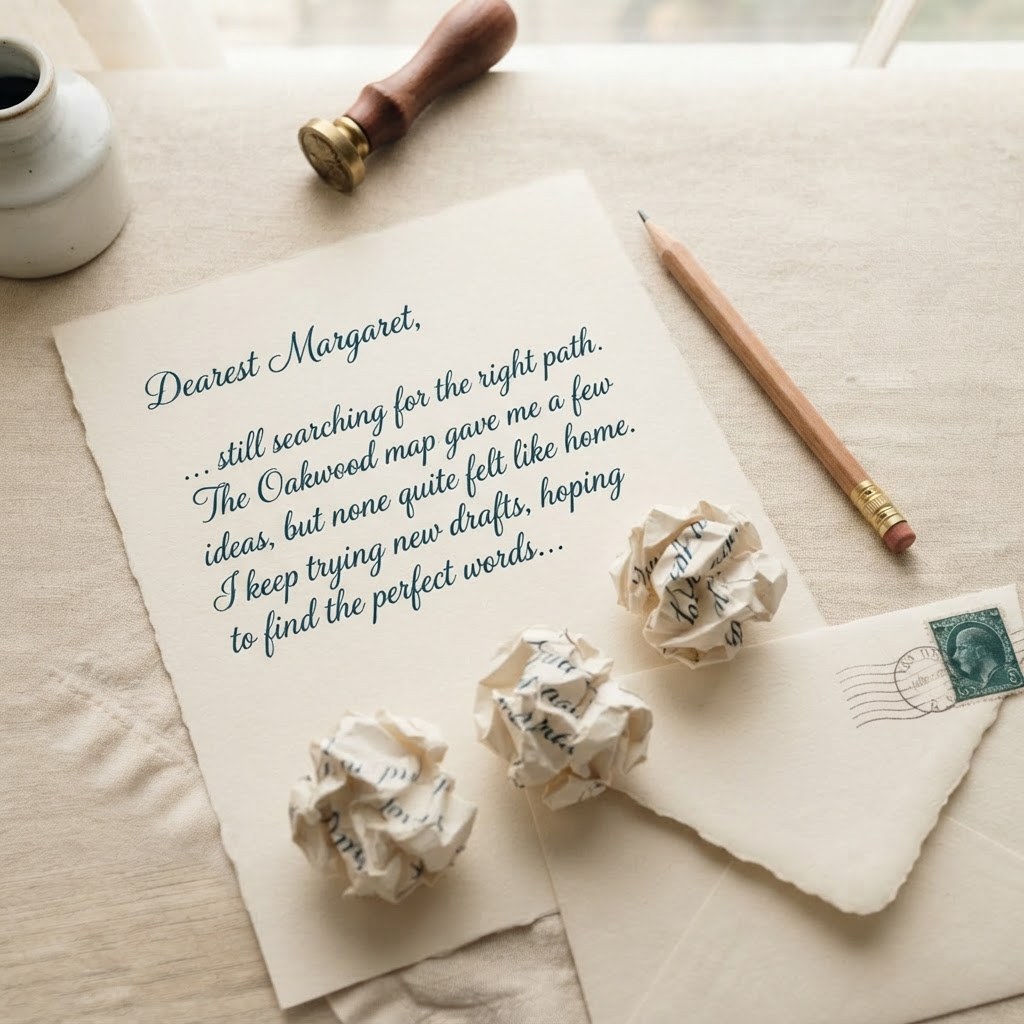 Dearest Margaret,
... still searching for the right path.
The Oakwood map gave me a few
ideas, but none quite felt like home.
I keep trying new drafts, hoping
to find the perfect words...